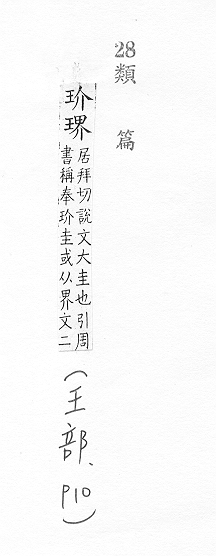 28
類篇
玠琾
居拜切說文大圭也引周
書稱奉玠圭或从界文二
(王部、P10)